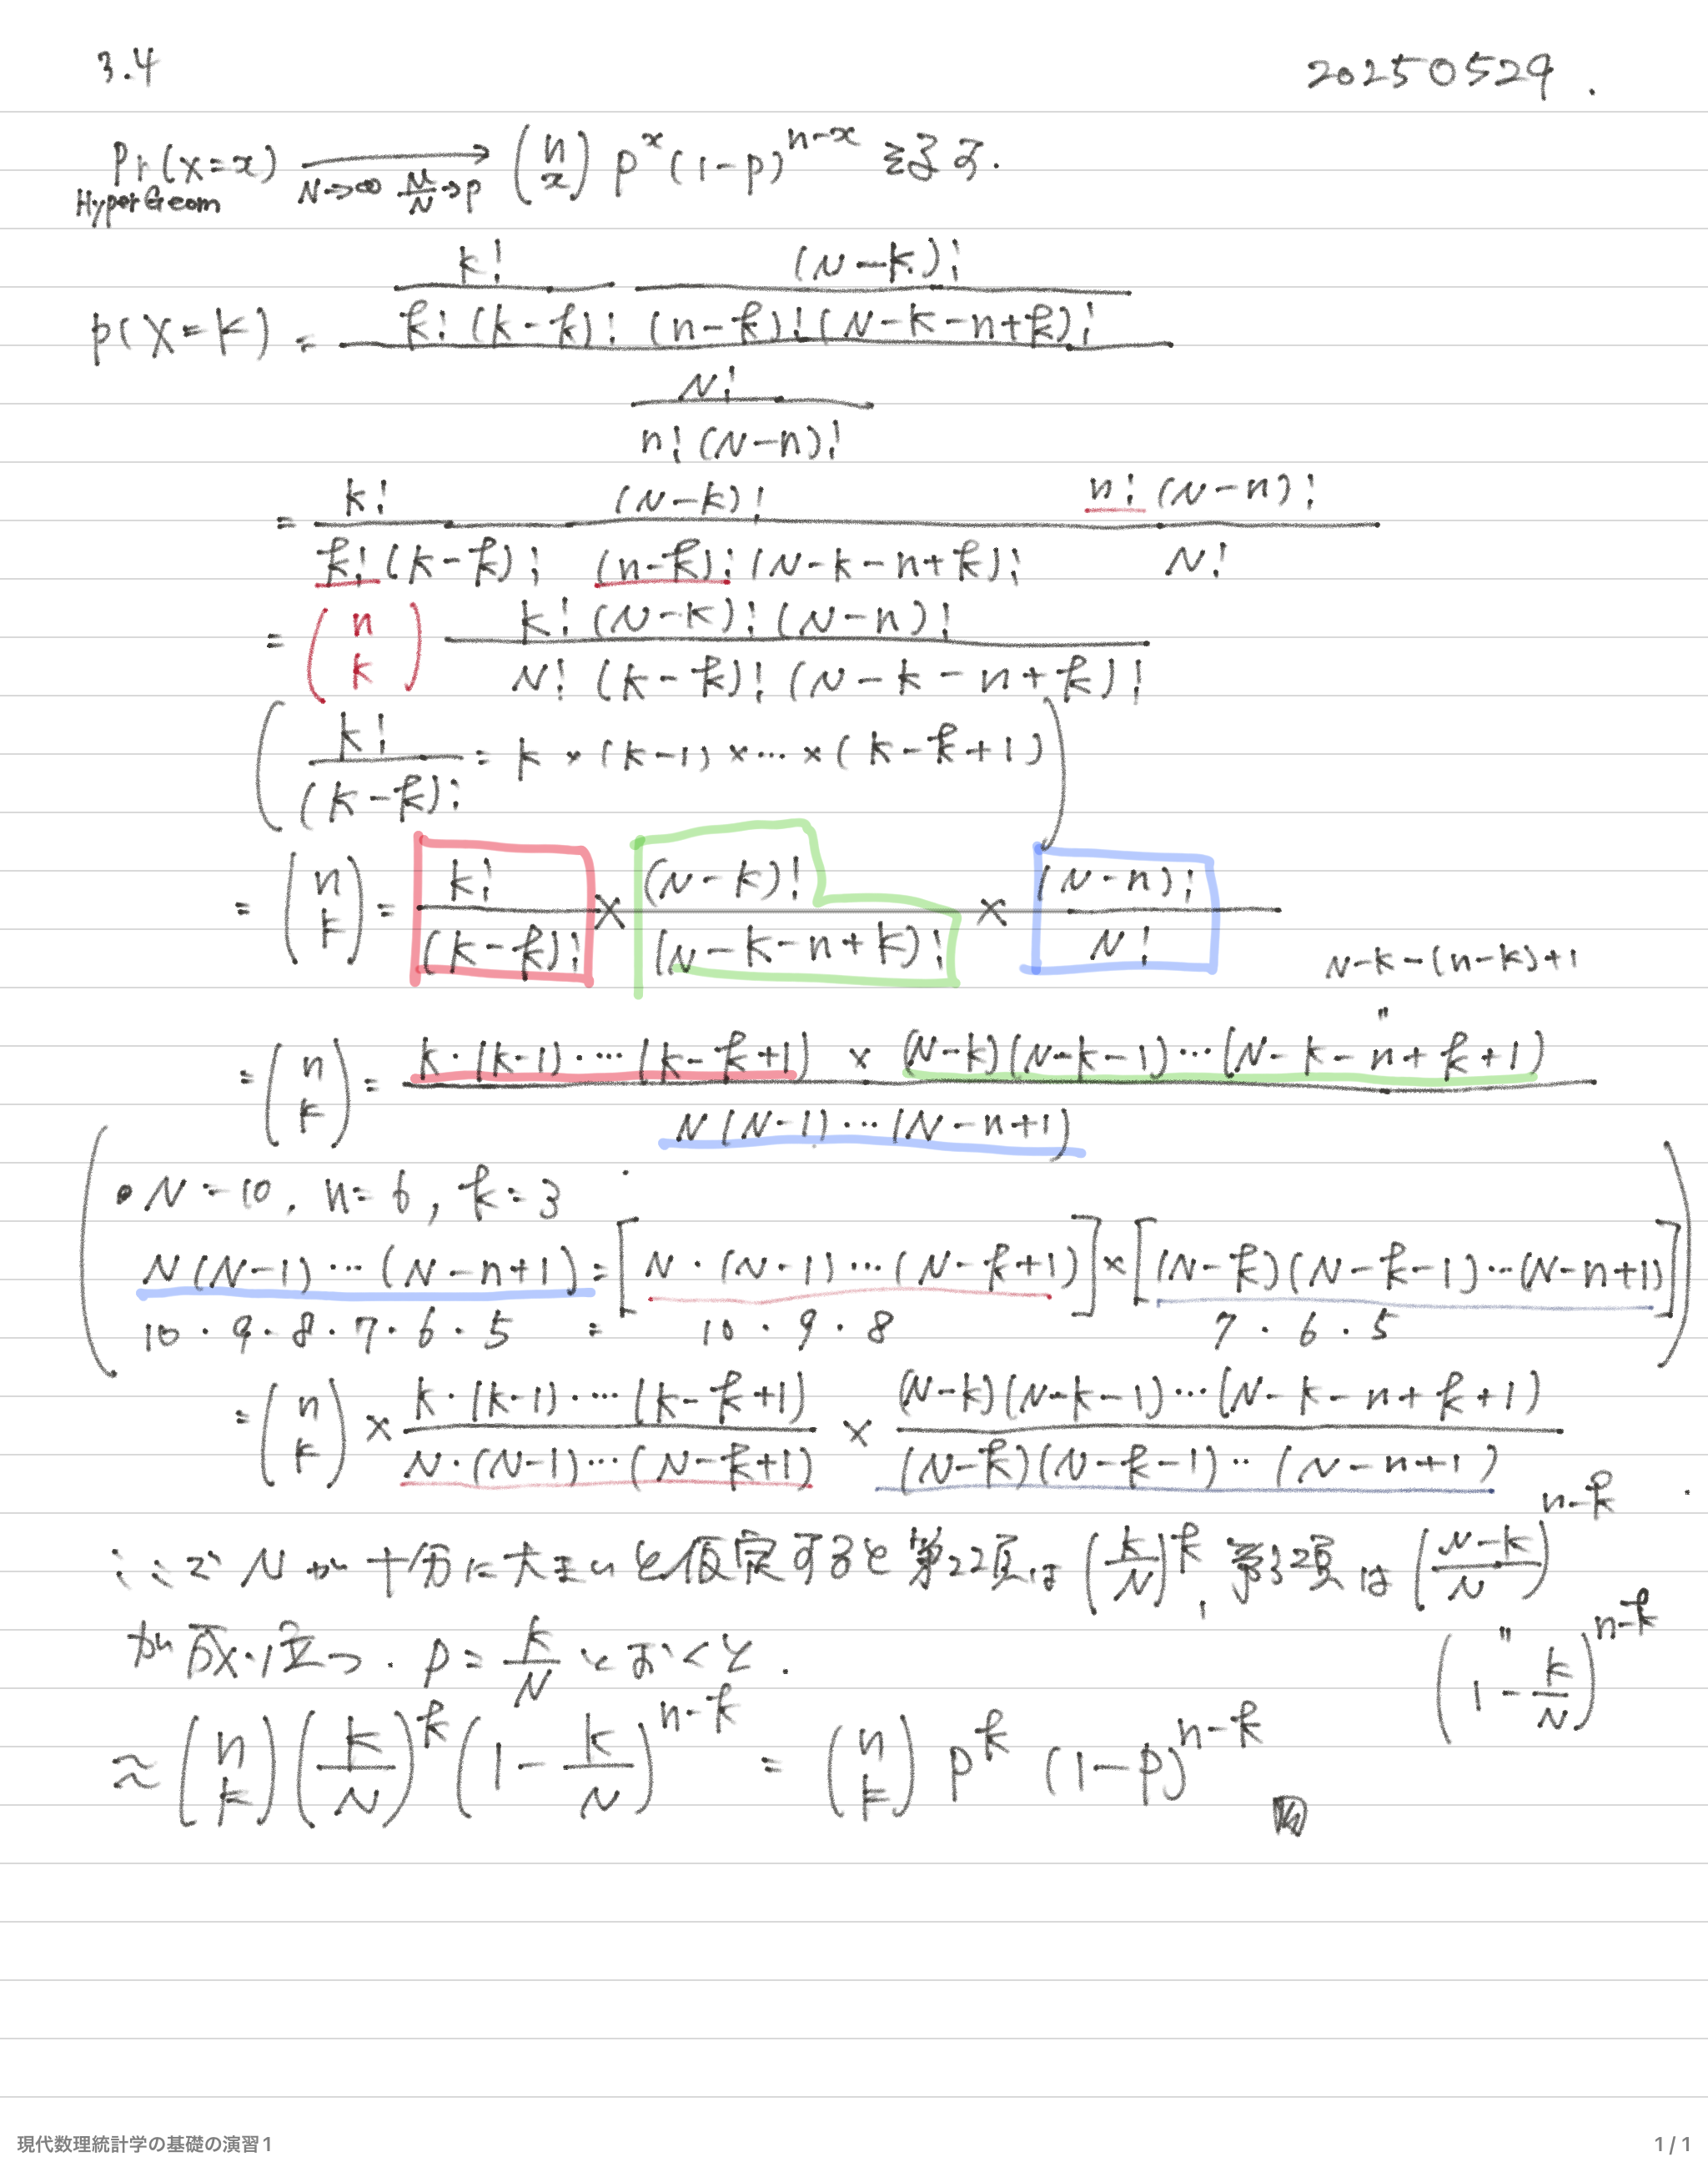 3.4 20250529.
Pr(X=x) HyperGeom → N→∞ M/N→p (n x) p^x (1-p)^{n-x} を示す.
p(X=K) = k!/(k!(K-k)!) (N-K)!/((n-k)!(N-K-n+k)!) / N!/(n!(N-n)!)
= K!/(k!(K-k)!) (N-K)!/((n-k)!(N-K-n+k)!) n!(N-n)!/N!
= (n k) K!(N-K)!(N-n)!/(N!(K-k)!(N-K-n+k)!)
( K!/(K-k)! = K×(K-1)×…×(K-k+1) )
= (n k) = K!/(K-k)! × (N-K)!/(N-K-n+k)! × (N-n)!/N!
N-K-(n-k)+1
〃
= (n k) = K·(K-1)·…(K-k+1) × (N-K)(N-K-1)…(N-K-n+k+1) / N(N-1)…(N-n+1)
• N=10, n=6, k=3
N(N-1)…(N-n+1) = [N·(N-1)…(N-k+1)] × [(N-k)(N-k-1)…(N-n+1)]
10·9·8·7·6·5 = 10·9·8 7·6·5
= (n k) × K·(K-1)·…(K-k+1)/(N·(N-1)…(N-k+1)) × (N-K)(N-K-1)…(N-K-n+k+1)/((N-k)(N-k-1)…(N-n+1))
ここで Nが十分に大きいと仮定すると第2項は (K/N)^k, 第3項は ((N-K)/N)^{n-k}
が成り立つ. p=K/N とおくと. 〃 (1-K/N)^{n-k}
≈ (n k)(K/N)^k (1-K/N)^{n-k} = (n k) p^k (1-p)^{n-k}
現代数理統計学の基礎の演習1 1 / 1